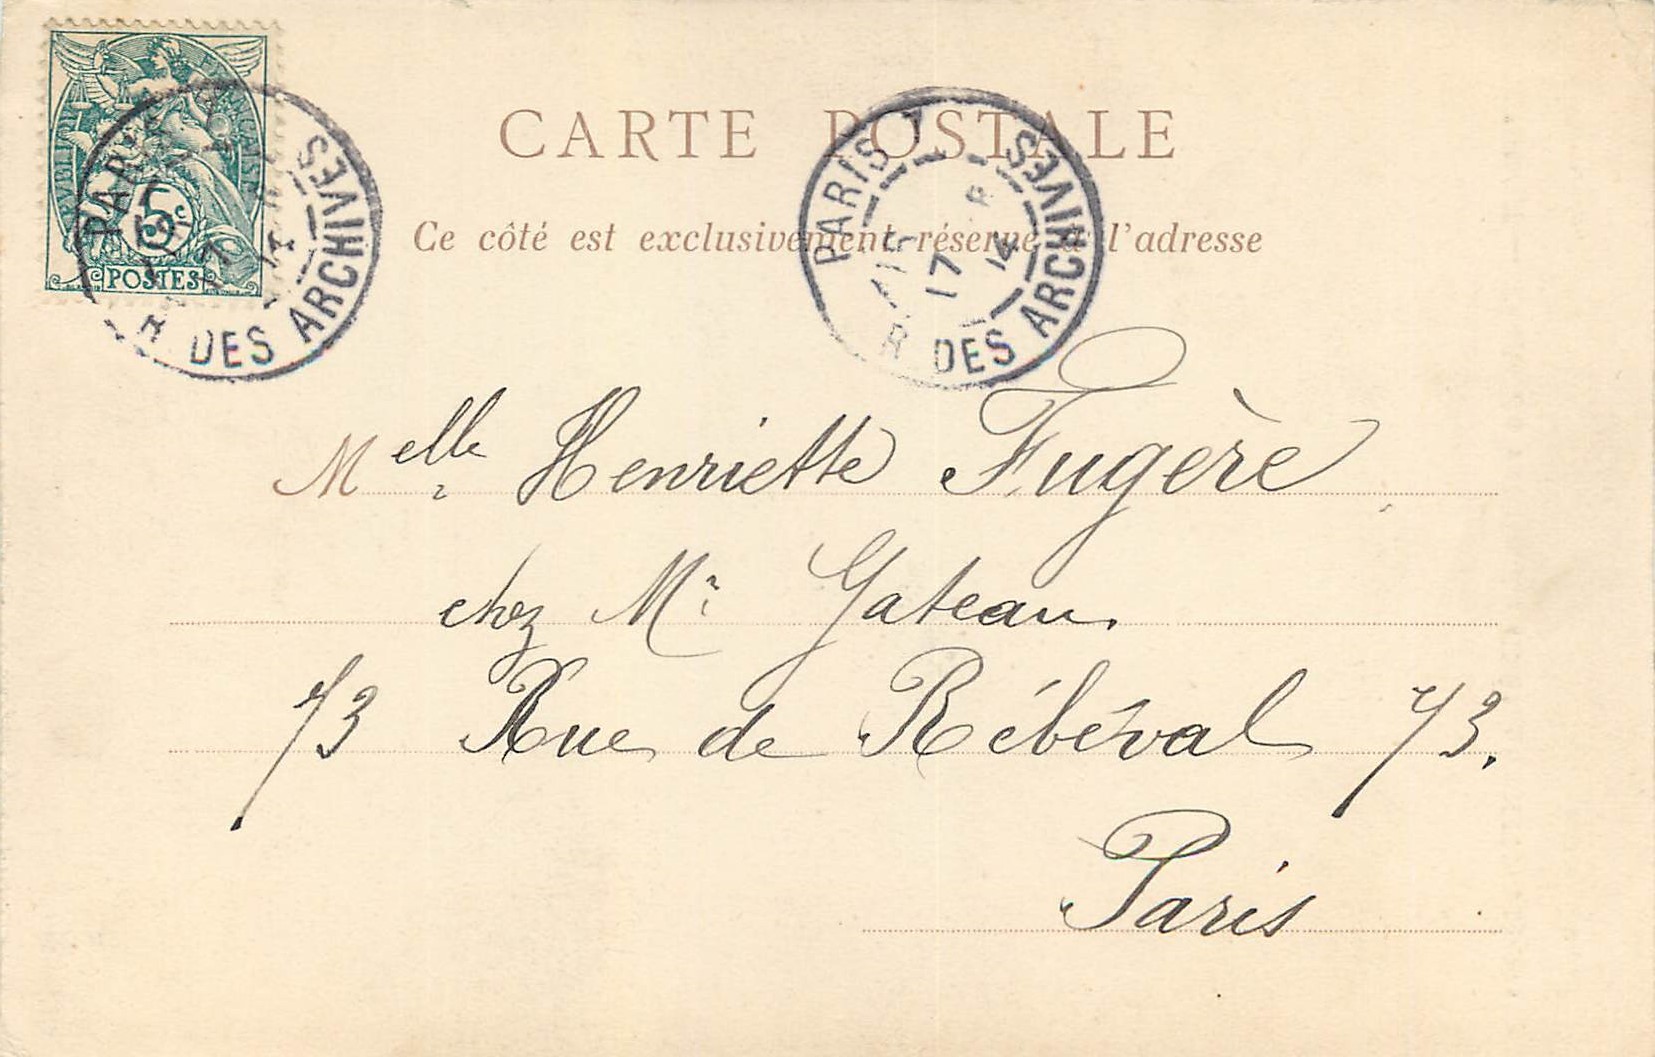 RÉPUBLIQUE FRANÇAISE
5c
POSTES
PARIS
R DES ARCHIVES
CARTE POSTALE
PARIS
R DES ARCHIVES
17
14
Ce côté est exclusivement réservé à l'adresse
Melle Henriette Fugère,
chez Mr Gateau.
73 Rue de Rébéval 73.
Paris